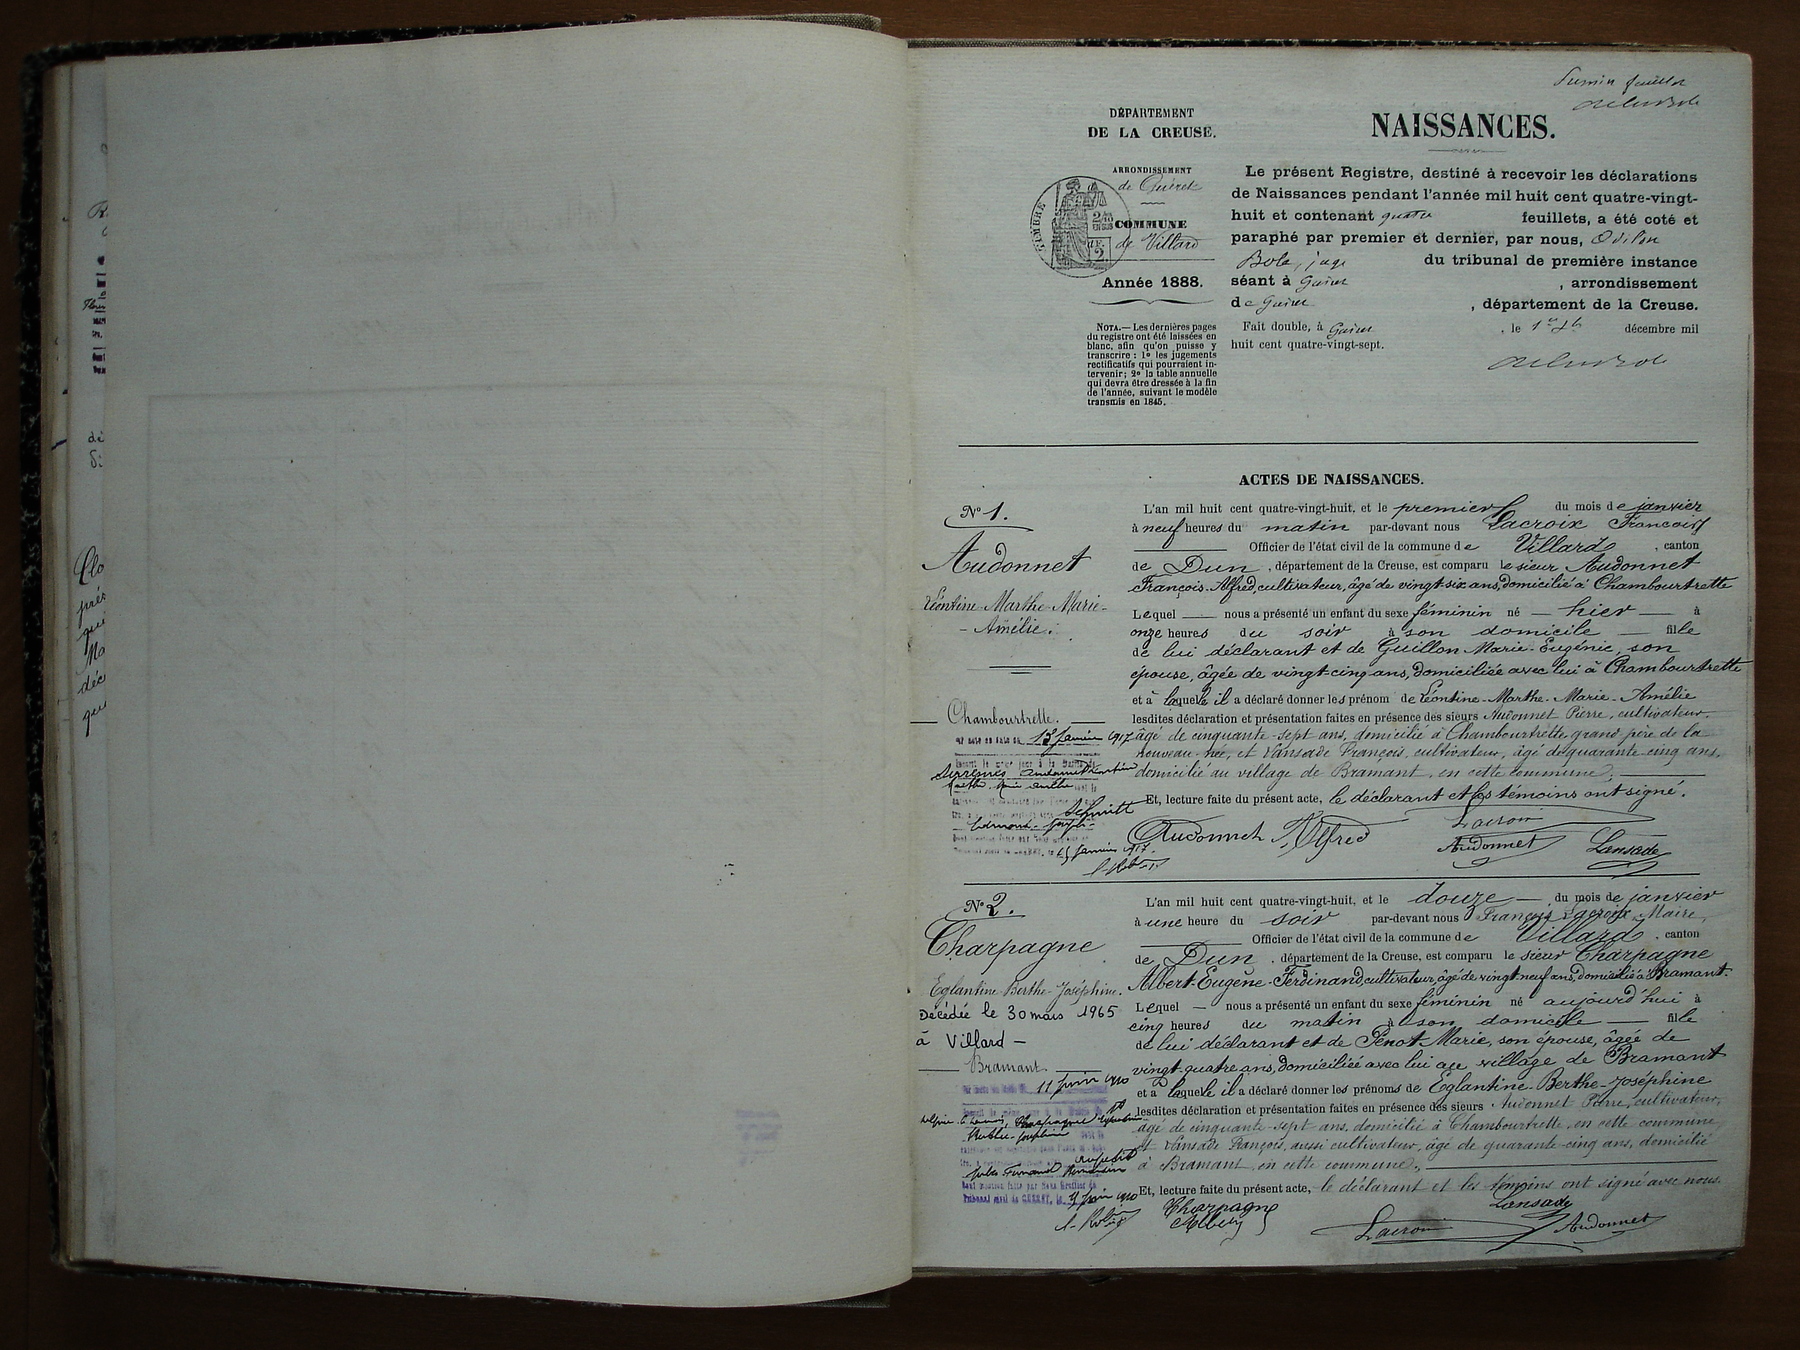 Premier feuillet
NAISSANCES.
DÉPARTEMENT
DE LA CREUSE.
ARRONDISSEMENT
de Guéret
COMMUNE
de Villard
TIMBRE
Année 1888.
NOTA.— Les dernières pages
du registre ont été laissées en
blanc, afin qu'on puisse y
transcrire : 1o les jugements
rectificatifs qui pourraient in-
tervenir; 2o la table annuelle
qui devra être dressée à la fin
de l'année, suivant le modèle
transmis en 1845.
Le présent Registre, destiné à recevoir les déclarations
de Naissances pendant l'année mil huit cent quatre-vingt-
huit et contenant quatre feuillets, a été coté et
paraphé par premier et dernier, par nous, Odilon
Bole, juge du tribunal de première instance
séant à Guéret , arrondissement
de Guéret , département de la Creuse.
Fait double, à Guéret , le décembre mil
huit cent quatre-vingt-sept.
ACTES DE NAISSANCES.
No 1.
Audonnet
Léontine-Marthe-Marie-
-Amélie.
Chambourtrette.
13 janvier 1917
Schmitt
15 janvier 1917
L'an mil huit cent quatre-vingt-huit, et le premier du mois de janvier
à neuf heures du matin par-devant nous Lacroix François
Officier de l'état civil de la commune de Villard , canton
de Dun , département de la Creuse, est comparu le sieur Audonnet
François-Alfred, cultivateur, âgé de vingt-six ans, domicilié à Chambourtrette
Lequel — nous a présenté un enfant du sexe féminin né — hier — à
onze heures du soir à son domicile — fille
de lui déclarant et de Guillon Marie-Eugénie, son
épouse, âgée de vingt-cinq ans, domiciliée avec lui à Chambourtrette
et à laquelle il a déclaré donner les prénom de Léontine-Marthe-Marie-Amélie
lesdites déclaration et présentation faites en présence des sieurs Audonnet Pierre, cultivateur,
âgé de cinquante-sept ans, domicilié à Chambourtrette, grand père de la
nouveau-née, et Lansade François, cultivateur, âgé de quarante-cinq ans,
domicilié au village de Bramant, en cette commune.
Et, lecture faite du présent acte, le déclarant et les témoins ont signé.
Lacroix
Audonnet Alfred Audonnet Lansade
No 2.
Charpagne
Eglantine-Berthe-Joséphine.
Décédée le 30 mars 1965
à Villard —
Bramant.
11 juin 1910
L'an mil huit cent quatre-vingt-huit, et le douze — du mois de janvier
à une heure du soir par-devant nous François Lacroix, Maire,
Officier de l'état civil de la commune de Villard , canton
de Dun , département de la Creuse, est comparu le sieur Charpagne
Albert-Eugène-Ferdinand, cultivateur, âgé de vingt-neuf ans, domicilié à Bramant.
Lequel — nous a présenté un enfant du sexe féminin né aujourd'hui à
cinq heures du matin à son domicile — fille
de lui déclarant et de Penot Marie, son épouse, âgée de
vingt-quatre ans, domiciliée avec lui au village de Bramant
et à laquelle il a déclaré donner les prénoms de Eglantine-Berthe-Joséphine
lesdites déclaration et présentation faites en présence des sieurs Audonnet Pierre, cultivateur,
âgé de cinquante-sept ans, domicilié à Chambourtrette, en cette commune
et Lansade François, aussi cultivateur, âgé de quarante-cinq ans, domicilié
à Bramant, en cette commune.
Et, lecture faite du présent acte, le déclarant et les témoins ont signé avec nous.
Charpagne Lansade
Albert Lacroix Audonnet